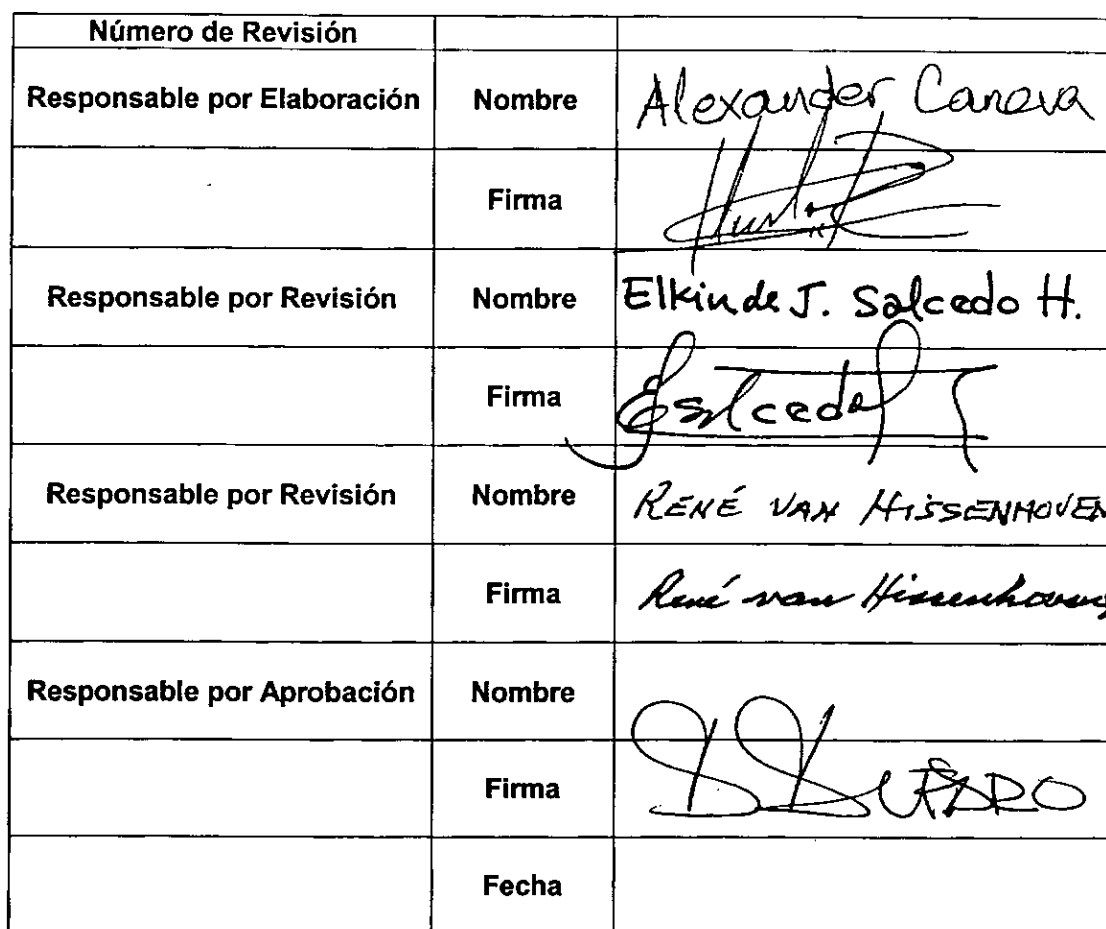 Número de Revisión
Responsable por Elaboración Nombre Alexander Caneva
Firma
Responsable por Revisión Nombre Elkin de J. Salcedo H.
Firma Esalcedo
Responsable por Revisión Nombre RENÉ VAN HISSENHOVEN
Firma René van Hissenhoven
Responsable por Aprobación Nombre
Firma
Fecha